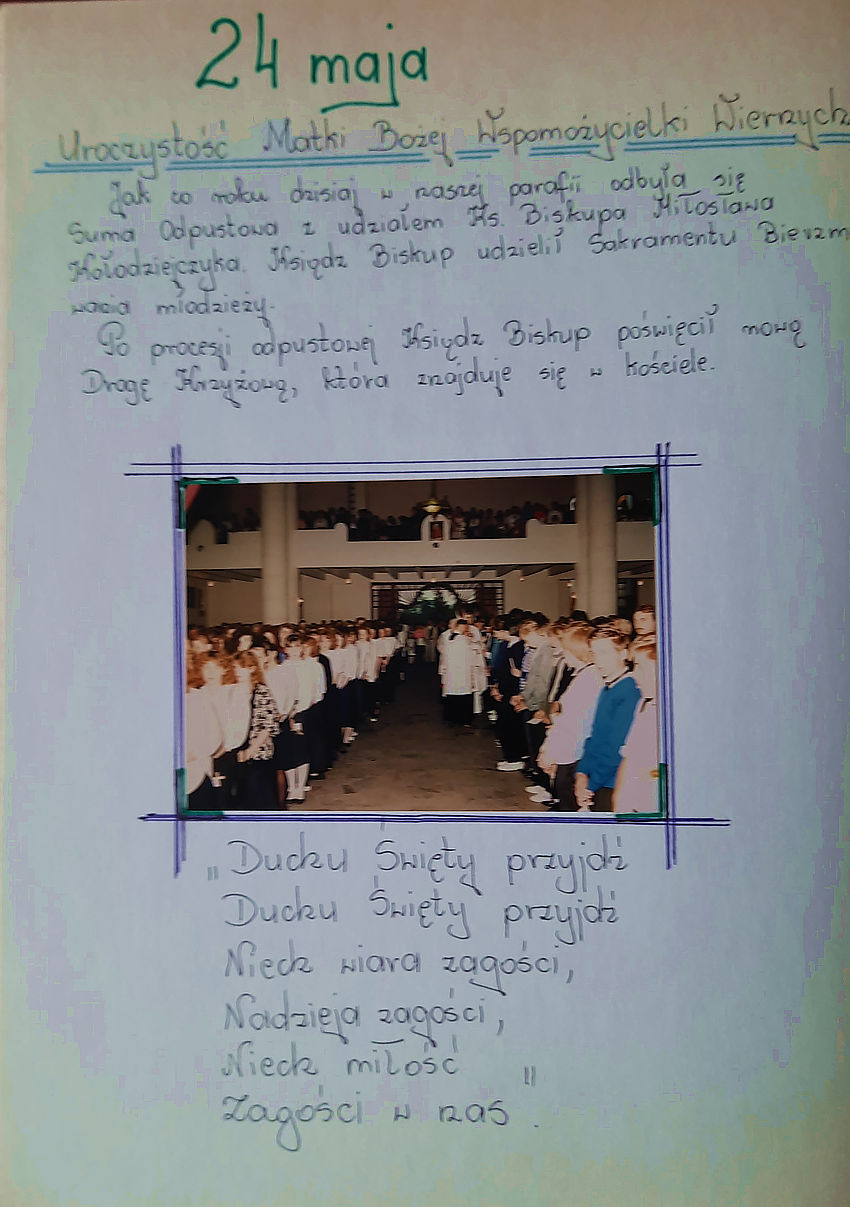 24 maja
Uroczystość Matki Bożej Wspomożycielki Wiernych
Jak co roku dzisiaj w naszej parafii odbyła się
Suma Odpustowa z udziałem Ks. Biskupa Miłosława
Kołodziejczyka. Ksiądz Biskup udzielił Sakramentu Bierzm
wania młodzieży.
Po procesji odpustowej Ksiądz Biskup poświęcił nową
Drogę Krzyżową, która znajduje się w kościele.
„Duchu Święty przyjdź
Duchu Święty przyjdź
Niech wiara zagości,
Nadzieja zagości,
Niech miłość
Zagości w nas".